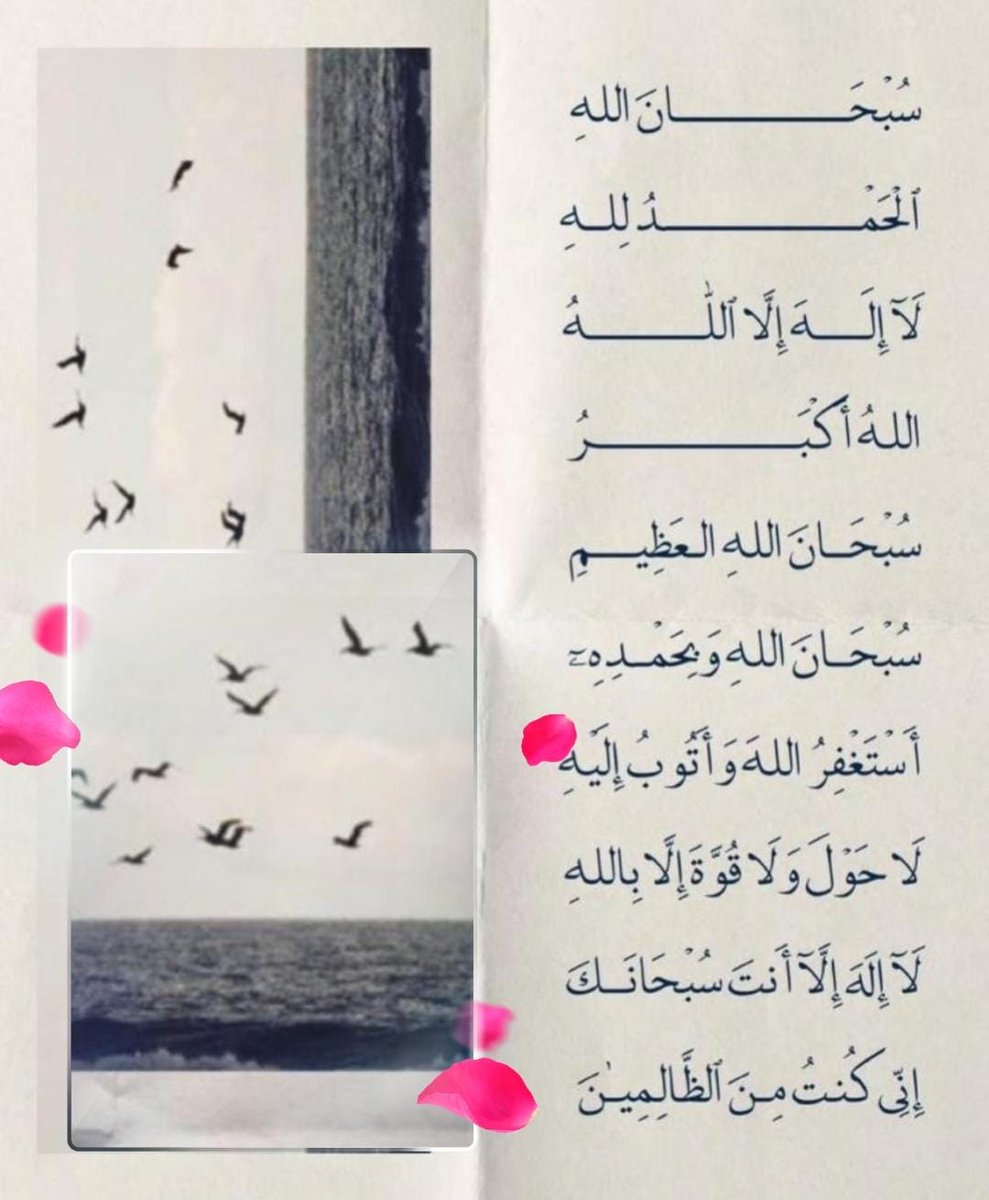 سُبْحَـــانَ اللهِ
ٱلْحَمْـــدُ لِلهِ
لَآ إِلَـــهَ إِلَّا ٱللَّـــهُ
اللهُ أَكْبَـــرُ
سُبْحَـانَ اللهِ العَظِيـمِ
سُبْحَـانَ اللهِ وَبِحَمْـدِهِۦ
أَسْتَغْفِرُ اللهَ وَأَتُوبُ إِلَيْهِ
لَا حَوْلَ وَلَا قُوَّةَ إِلَّا بِاللهِ
لَآ إِلَهَ إِلَّآ أَنتَ سُبْحَانَـكَ
إِنِّي كُنتُ مِـنَ ٱلظَّالِمِيـنَ